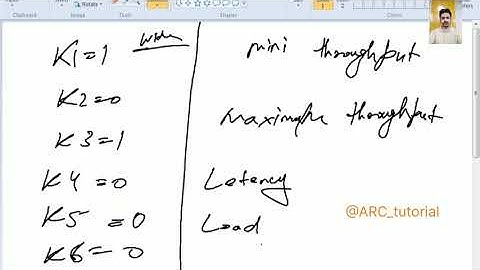 Rotate
Clipboard
Image
K1=1
mini throughput
K2=0
K3=1
maximum throughput
K4=0
Latency
K5=0
Load
K6=0
@ARC_tutorial